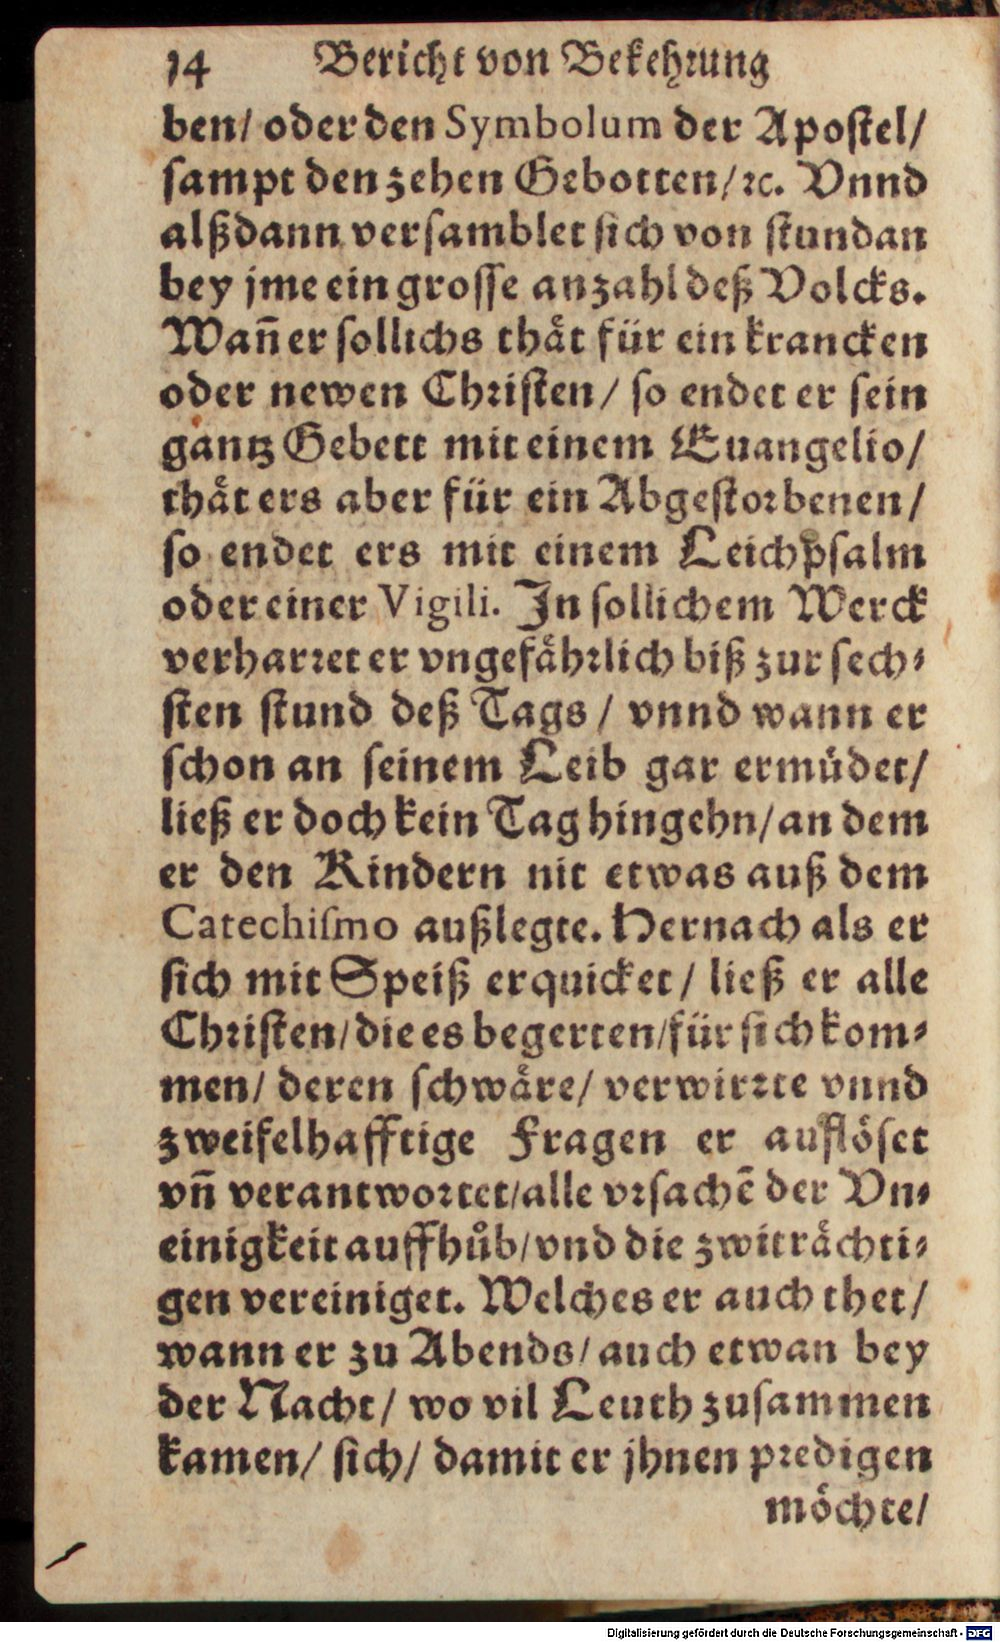 14 Bericht von Bekehrung
ben/ oder den Symbolum der Apostel/
sampt den zehen Gebotten/ꝛc. Vnnd
alßdann versamblet sich von stundan
bey jme ein grosse anzahl deß Volcks.
Wañ er sollichs thät für ein krancken
oder newen Christen/ so endet er sein
gantz Gebett mit einem Euangelio/
thät ers aber für ein Abgestorbenen/
so endet ers mit einem Leichpsalm
oder einer Vigili. In sollichem Werck
verharret er vngefährlich biß zur sech⸗
sten stund deß Tags/ vnnd wann er
schon an seinem Leib gar ermüdet/
ließ er doch kein Tag hingehn/an dem
er den Kindern nit etwas auß dem
Catechismo außlegte. Hernach als er
sich mit Speiß erquicket/ ließ er alle
Christen/die es begerten/für sich kom⸗
men/ deren schwäre/ verwirrte vnnd
zweifelhafftige Fragen er auflöset
vñ verantwortet/alle vrsachē der Vn⸗
einigkeit auffhůb/vnd die zwiträchti⸗
gen vereiniget. Welches er auch thet/
wann er zu Abends/auch etwan bey
der Nacht/ wo vil Leuth zusammen
kamen/ sich/ damit er jhnen predigen
möchte/
Digitalisierung gefördert durch die Deutsche Forschungsgemeinschaft - DFG